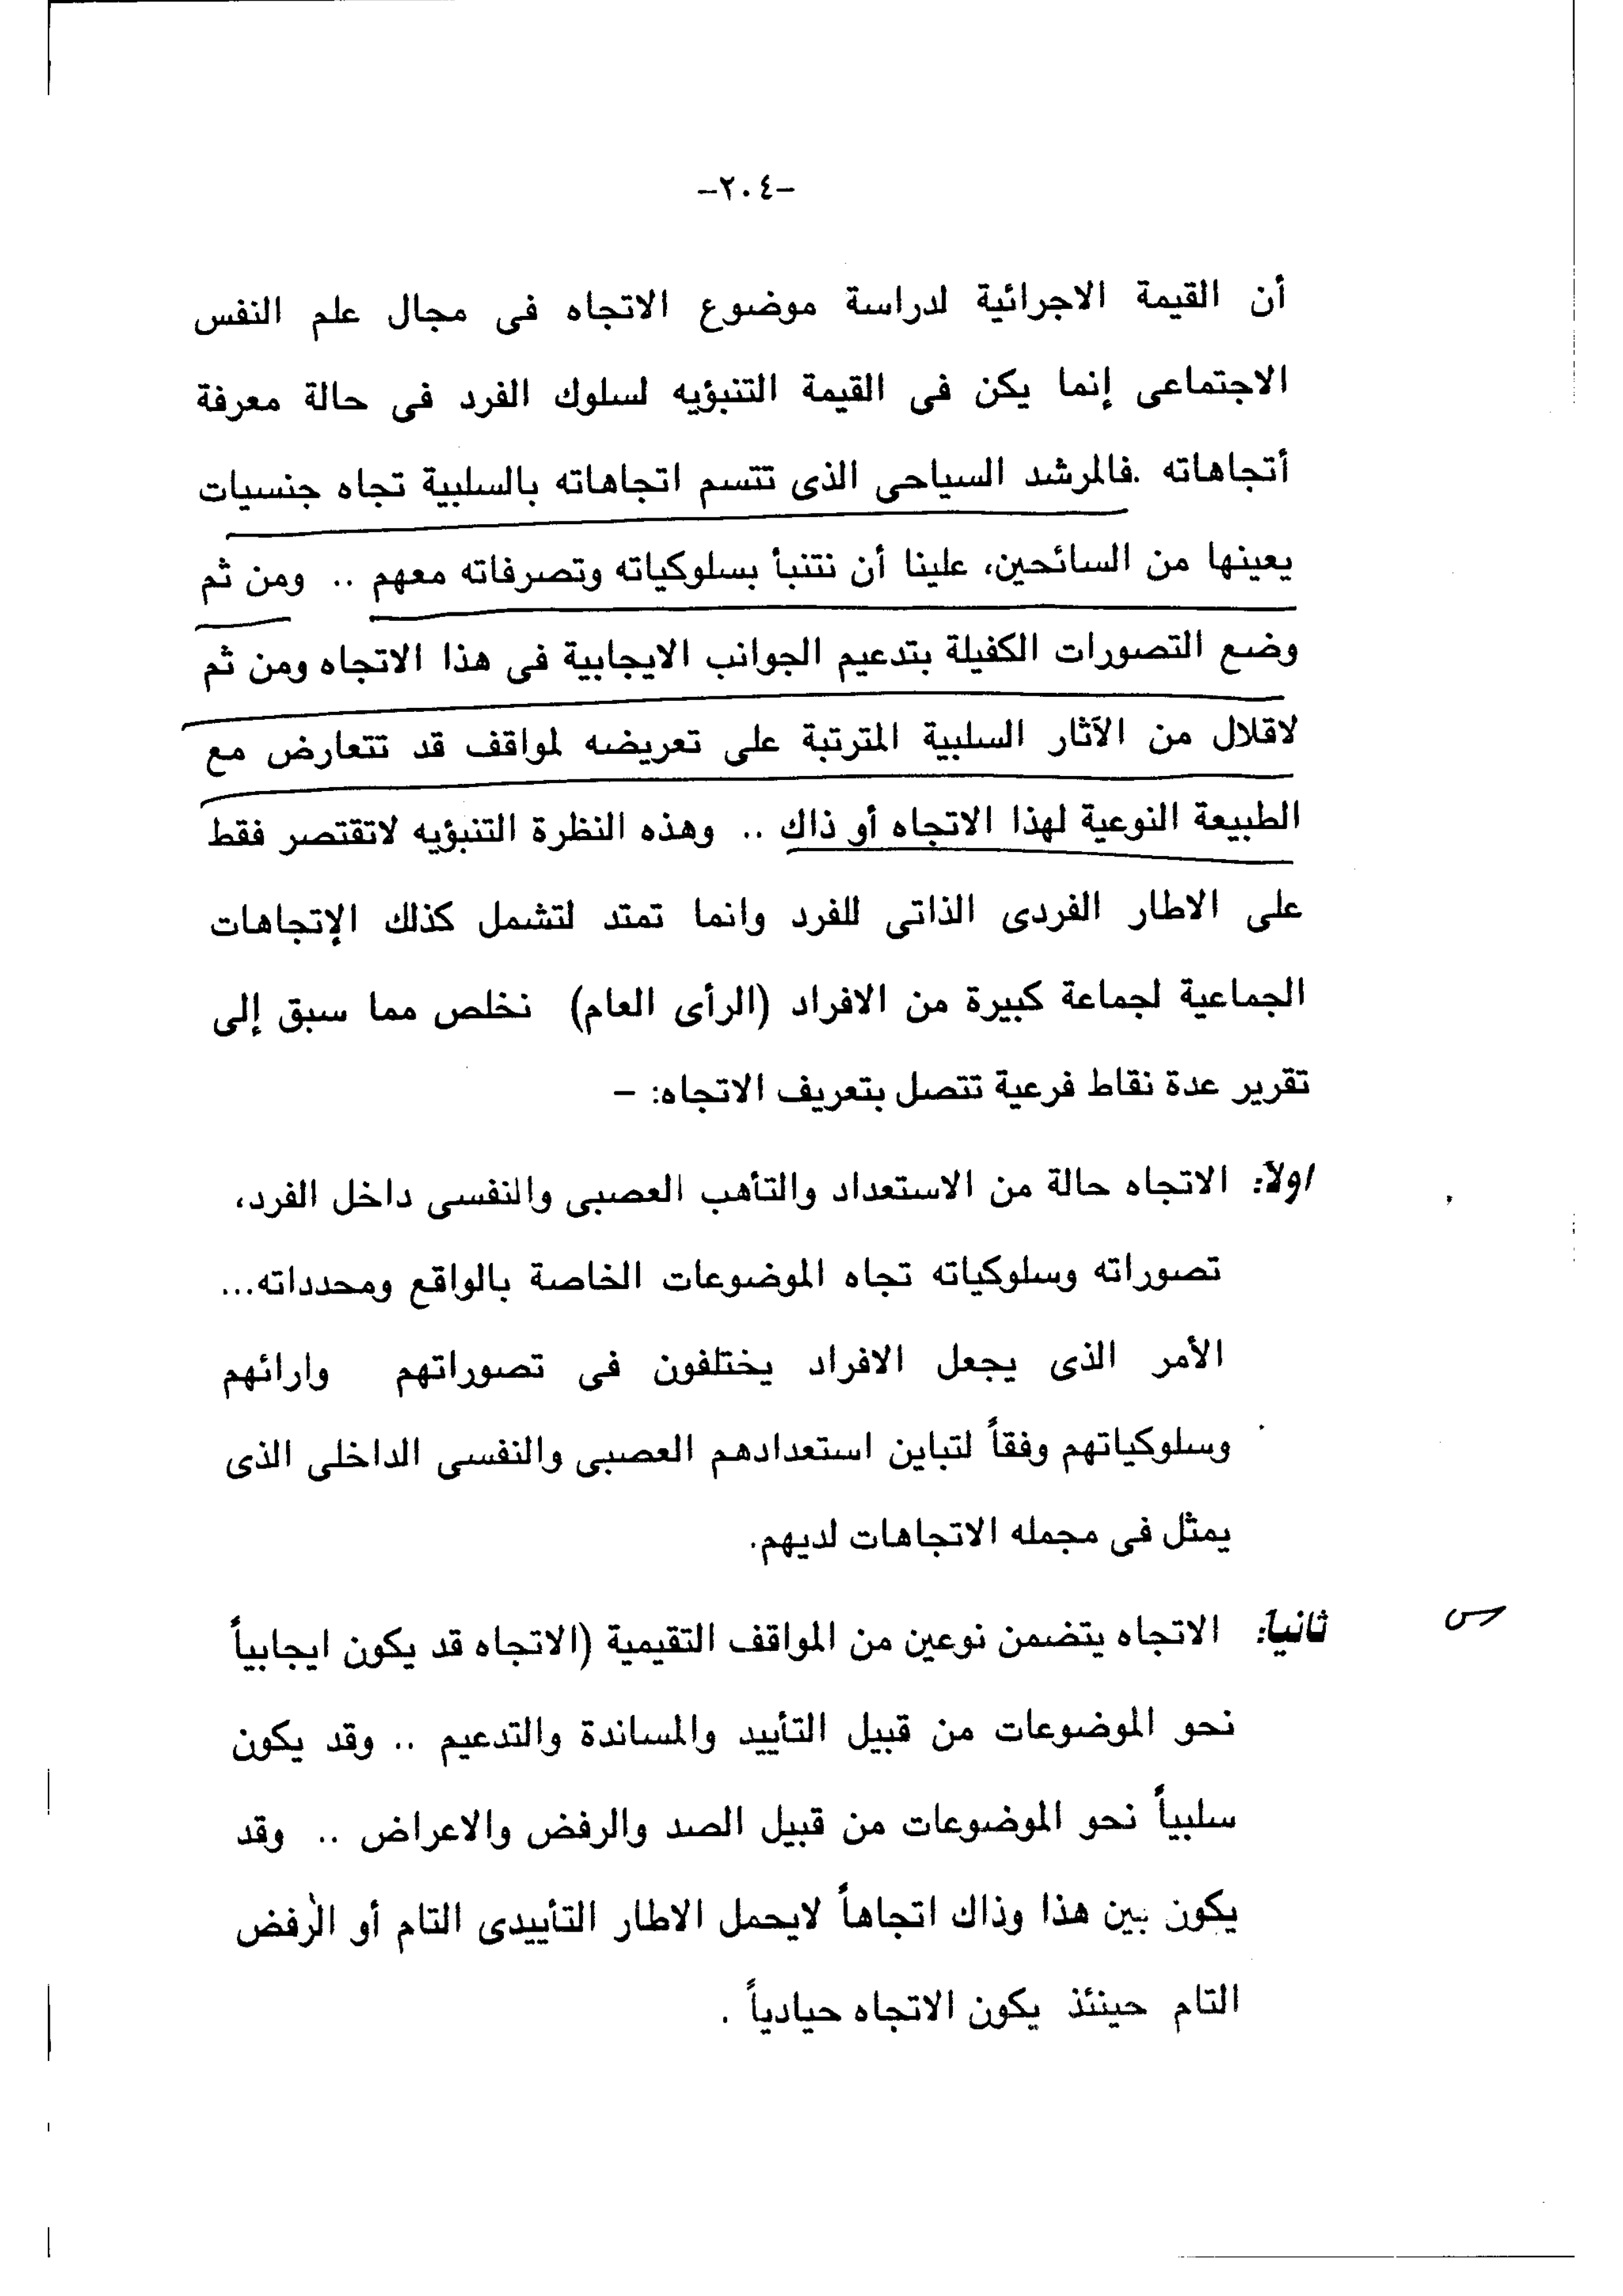 -٢٠٤-
أن القيمة الاجرائية لدراسة موضوع الاتجاه فى مجال علم النفس
الاجتماعى إنما يكن فى القيمة التنبؤيه لسلوك الفرد فى حالة معرفة
أتجاهاته .فالمرشد السياحى الذى تتسم اتجاهاته بالسلبية تجاه جنسيات
يعينها من السائحين، علينا أن نتنبأ بسلوكياته وتصرفاته معهم .. ومن ثم
وضع التصورات الكفيلة بتدعيم الجوانب الايجابية فى هذا الاتجاه ومن ثم
لاقلال من الآثار السلبية المترتبة على تعريضه لمواقف قد تتعارض مع
الطبيعة النوعية لهذا الاتجاه أو ذاك .. وهذه النظرة التنبؤيه لاتقتصر فقط
على الاطار الفردى الذاتى للفرد وانما تمتد لتشمل كذلك الإتجاهات
الجماعية لجماعة كبيرة من الافراد (الرأى العام) نخلص مما سبق إلى
تقرير عدة نقاط فرعية تتصل بتعريف الاتجاه: -
اولاً: الاتجاه حالة من الاستعداد والتأهب العصبى والنفسى داخل الفرد،
تصوراته وسلوكياته تجاه الموضوعات الخاصة بالواقع ومحدداته...
الأمر الذى يجعل الافراد يختلفون فى تصوراتهم وارائهم
وسلوكياتهم وفقاً لتباين استعدادهم العصبى والنفسى الداخلى الذى
يمثل فى مجمله الاتجاهات لديهم.
ثانيا: الاتجاه يتضمن نوعين من المواقف التقيمية (الاتجاه قد يكون ايجابياً
نحو الموضوعات من قبيل التأييد والمساندة والتدعيم .. وقد يكون
سلبياً نحو الموضوعات من قبيل الصد والرفض والاعراض .. وقد
يكون بين هذا وذاك اتجاهاً لايحمل الاطار التأييدى التام أو الرفض
التام حينئذ يكون الاتجاه حيادياً .